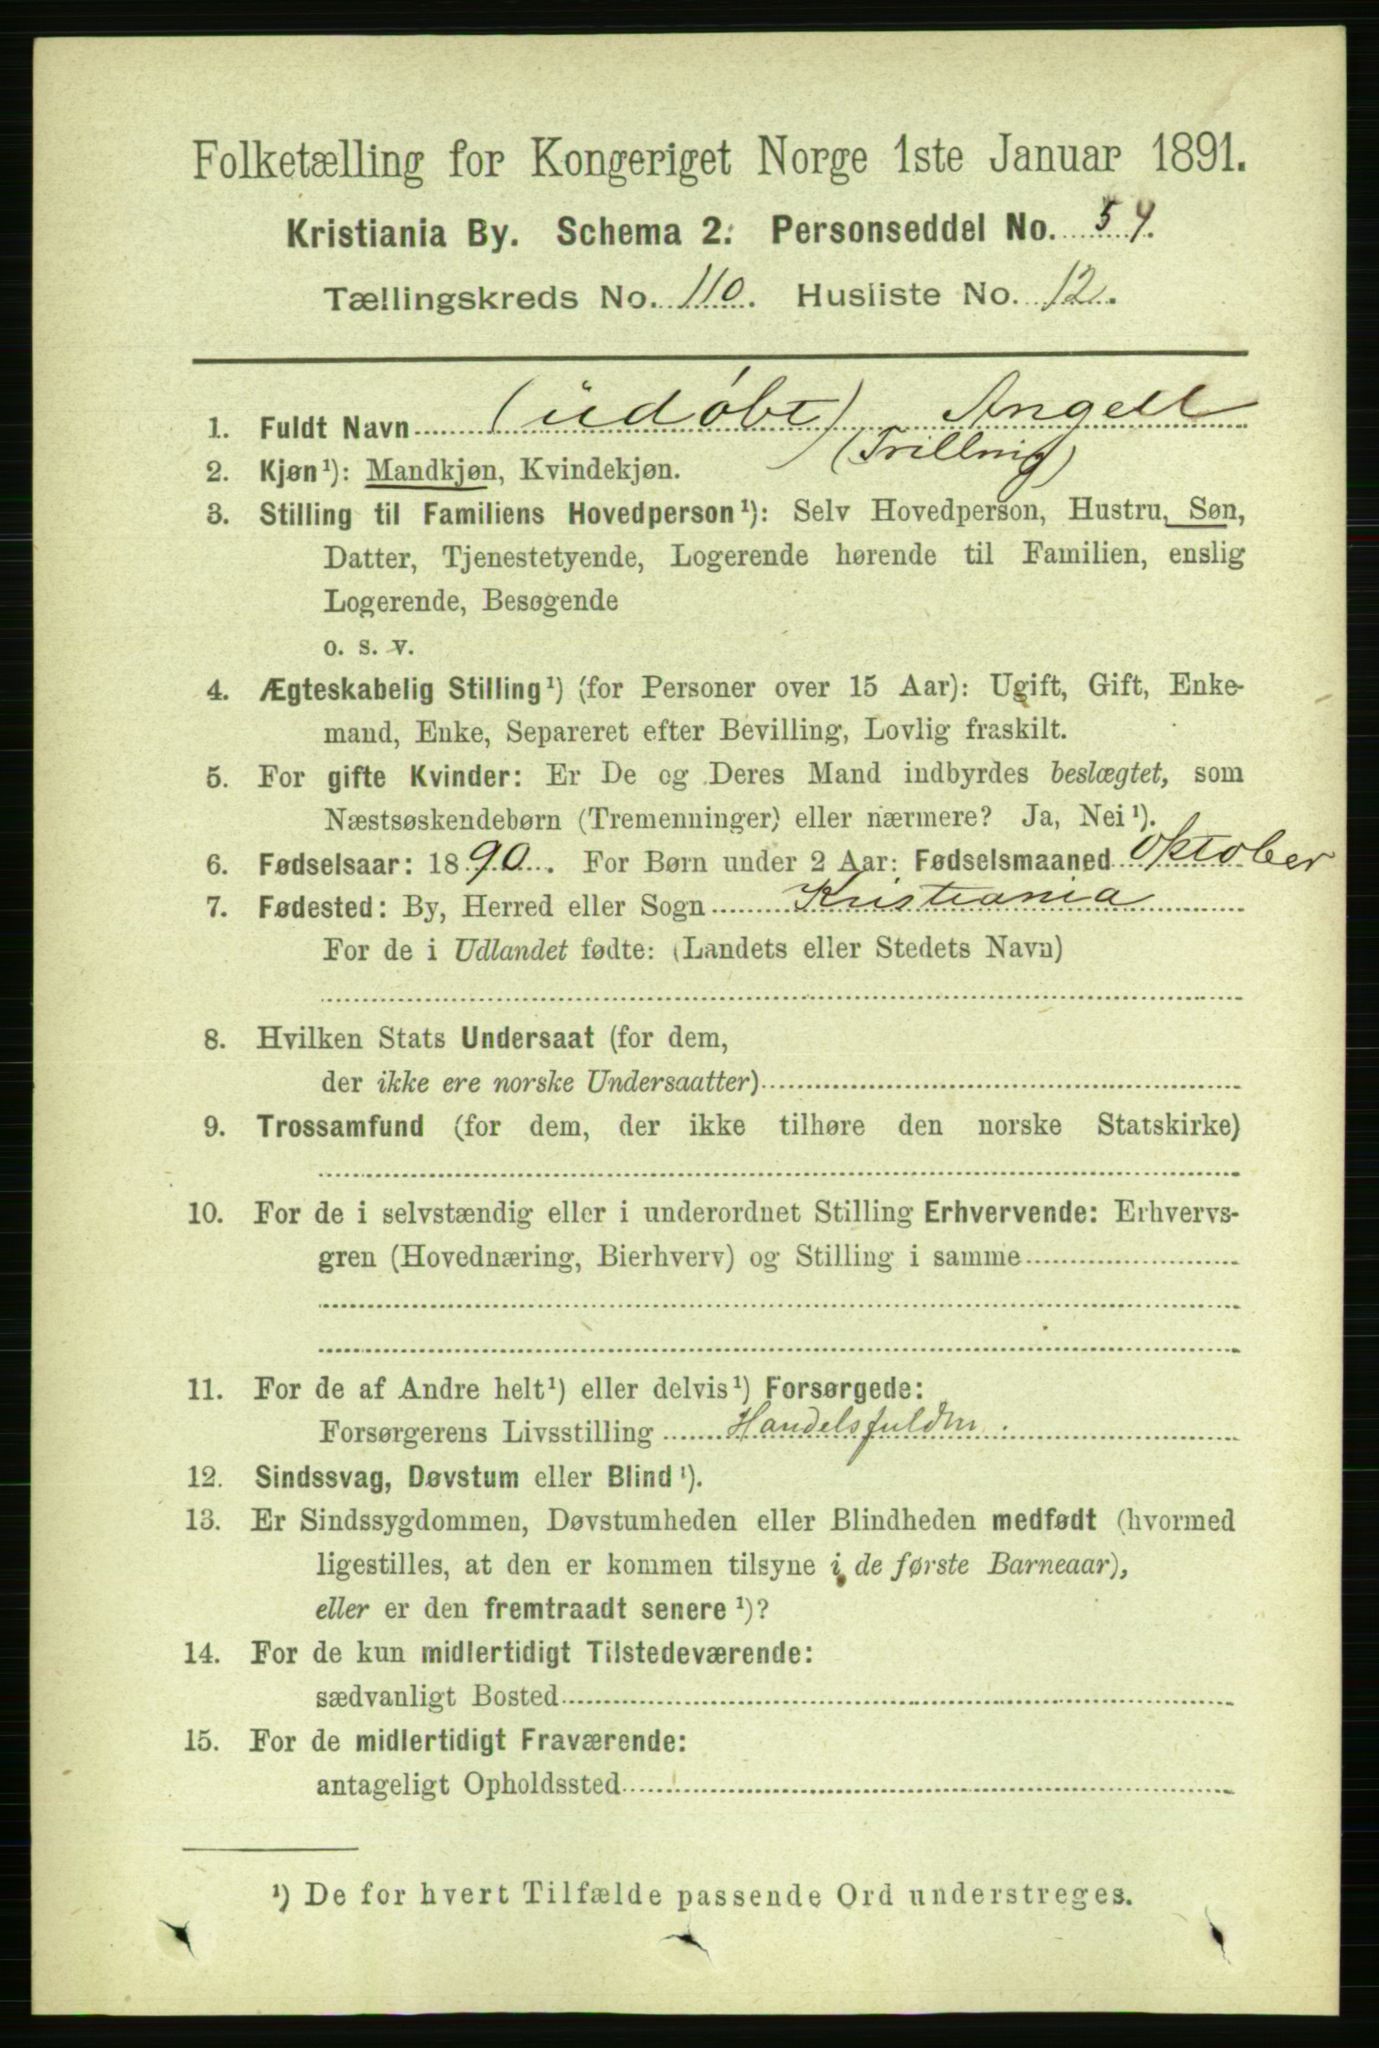 Folketælling for Kongeriget Norge 1ste Januar 1891.
Kristiania By. Schema 2. Personseddel No. 54.
Tællingskreds No. 110. Husliste No. 12.
1. Fuldt Navn (udøbt) Angell
(Trilling)
2. Kjøn¹): Mandkjøn, Kvindekjøn.
3. Stilling til Familiens Hovedperson¹): Selv Hovedperson, Hustru, Søn,
Datter, Tjenestetyende, Logerende hørende til Familien, enslig
Logerende, Besøgende
o. s. v.
4. Ægteskabelig Stilling¹) (for Personer over 15 Aar): Ugift, Gift, Enke-
mand, Enke, Separeret efter Bevilling, Lovlig fraskilt.
5. For gifte Kvinder: Er De og Deres Mand indbyrdes beslægtet, som
Næstsøskendebørn (Tremenninger) eller nærmere? Ja, Nei¹).
6. Fødselsaar: 1890. For Børn under 2 Aar: Fødselsmaaned Oktober
7. Fødested: By, Herred eller Sogn Kristiania
For de i Udlandet fødte: (Landets eller Stedets Navn)
8. Hvilken Stats Undersaat (for dem,
der ikke ere norske Undersaatter)
9. Trossamfund (for dem, der ikke tilhøre den norske Statskirke)
10. For de i selvstændig eller i underordnet Stilling Erhvervende: Erhvervs-
gren (Hovednæring, Bierhverv) og Stilling i samme
11. For de af Andre helt¹) eller delvis¹) Forsørgede:
Forsørgerens Livsstilling Handelsfuldm.
12. Sindssvag, Døvstum eller Blind¹).
13. Er Sindssygdommen, Døvstumheden eller Blindheden medfødt (hvormed
ligestilles, at den er kommen tilsyne i de første Barneaar),
eller er den fremtraadt senere¹)?
14. For de kun midlertidigt Tilstedeværende:
sædvanligt Bosted
15. For de midlertidigt Fraværende:
antageligt Opholdssted
¹) De for hvert Tilfælde passende Ord understreges.